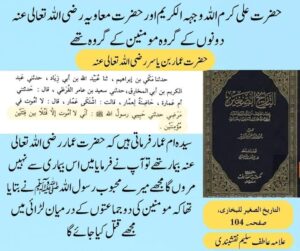 حضرت علی کرم اللہ وجہہ الکریم اور حضرت معاویہ رضی اللہ تعالیٰ عنہ
دونوں کے گروہ مومنین کے گروہ تھے
حضرت عمار بن یاسر رضی اللہ تعالیٰ عنہ
حدثنا مكي بن إبراهيم، ثنا عبيد الله بن أبي زياد، حدثني عبد
الكريم بن أبي المخارق، حدثني سعيد بن عامر القرظي، قال: حدثتني
أم عمارة، حاضنة لعمار، قالت: اشتكى عمار، قال: لا أموت في
مرضي، حدثني حبيبي رسول الله ﷺ أني لا أموت إلا قتلا بين فئتين
مؤمنتين
سیدہ ام عمار فرماتی ہیں کہ حضرت عمار رضی اللہ تعالیٰ عنہ
بیمار تھے تو آپ نے فرمایا میں اس بیماری سے نہیں
مروں گا مجھے میرے محبوب رسول اللہ ﷺ نے بتایا
تھا کہ مومنین کی دو جماعتوں کے درمیان لڑائی میں
مجھے قتل کیا جائے گا
التاريخ الصغير
التاریخ الصغیر للبخاری،
صفحہ 104
علامہ عاطف سلیم نقشبندی